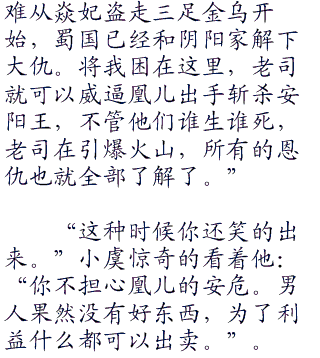 难从焱妃盗走三足金乌开
始，蜀国已经和阴阳家解下
大仇。将我困在这里，老司
就可以威逼凰儿出手斩杀安
阳王，不管他们谁生谁死，
老司在引爆火山，所有的恩
仇也就全部了解了。”
“这种时候你还笑的出
来。”小虞惊奇的看着他：
“你不担心凰儿的安危。男
人果然没有好东西，为了利
益什么都可以出卖。”。